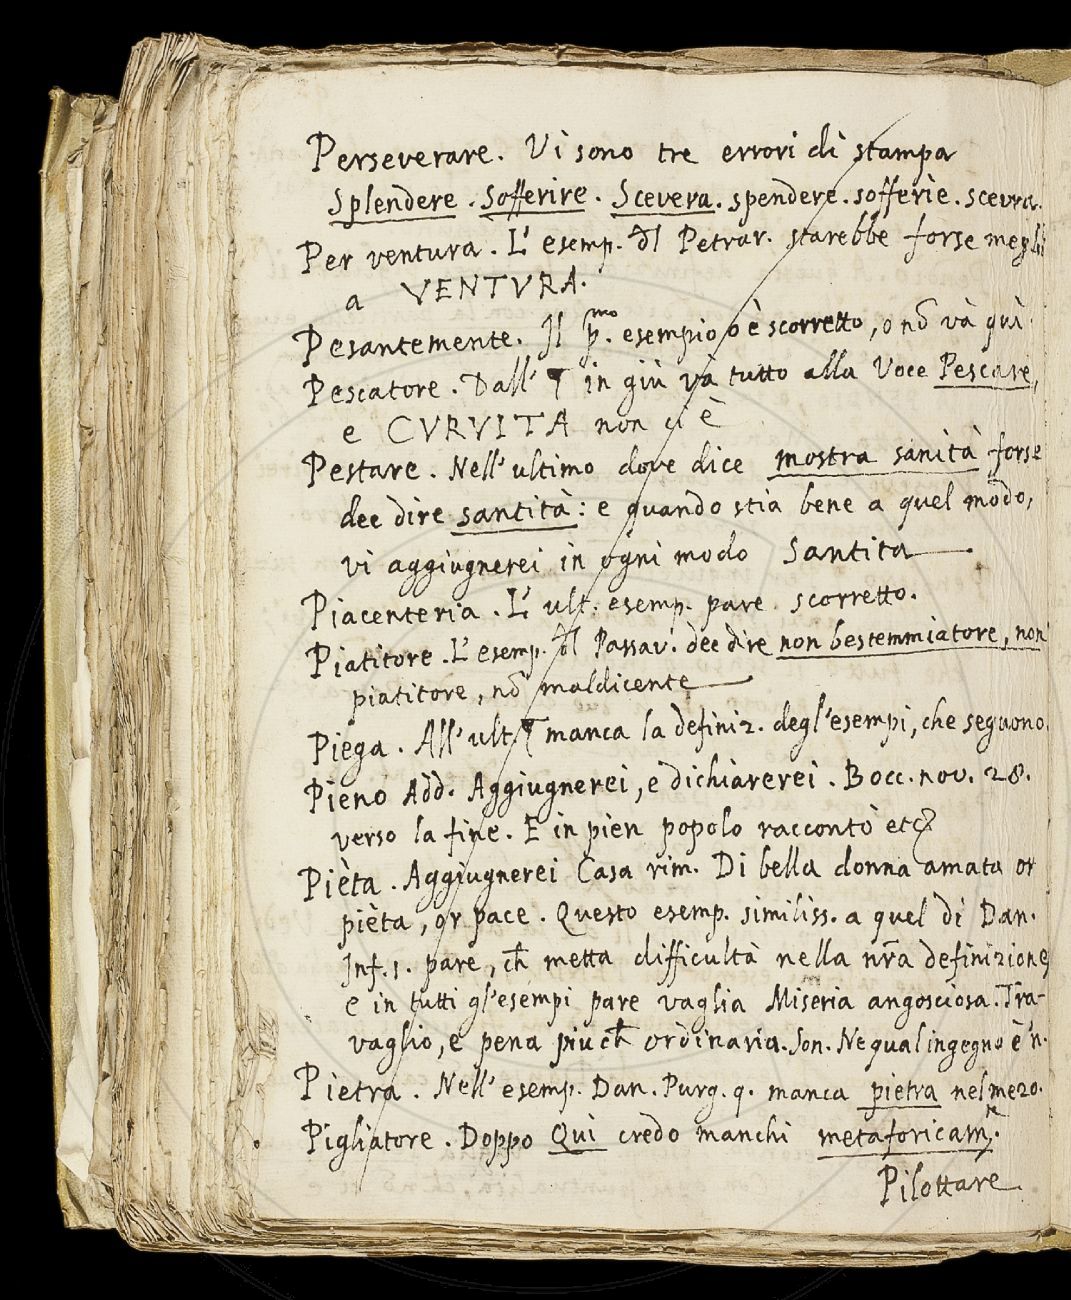 Perseverare. Vi sono tre errori di stampa
Splendere. Sofferire. Scevera. spendere. sofferie. scevra.
Per ventura. L' esemp. dl Petrar. starebbe forse megli
a VENTVRA.
Pesantemente. Il pmo. esempio o è scorretto, o nō và quì.
Pescatore. Dall' ¶ in giù và tutto alla Voce Pescare,
e CVRVITA non ci è
Pestare. Nell' ultimo dove dice mostra sanità forse
dee dire santità: e quando stia bene a quel modo,
vi aggiugnerei in ogni modo Santita
Piacenteria. L' ult. esemp. pare scorretto.
Piatitore. L' esemp. dl Passav. dee dire non bestemmiatore, non
piatitore, nō maldicente
Piega. All' ult. ¶ manca la definiz. degl' esempi, che seguono.
Pieno Add. Aggiugnerei, e dichiarerei. Bocc. nov. 28.
verso la fine. E in pien popolo raccontò etc
Pièta. Aggiugnerei Casa rim. Di bella donna amata or
pièta, or pace. Questo esemp. similiss. a quel di Dan.
Inf. 1. pare, ch̄ metta difficultà nella nr̄a definizione,
e in tutti gl' esempi pare vaglia Miseria angosciosa. Tra-
vaglio, e pena piu ch̄ ordinaria. Son. Ne qual ingegno è 'n.
Pietra. Nell' esemp. Dan. Purg. 9. manca pietra nel mezo.
Pigliatore. Doppo Qui credo manchi metaforicam.
Pilottare